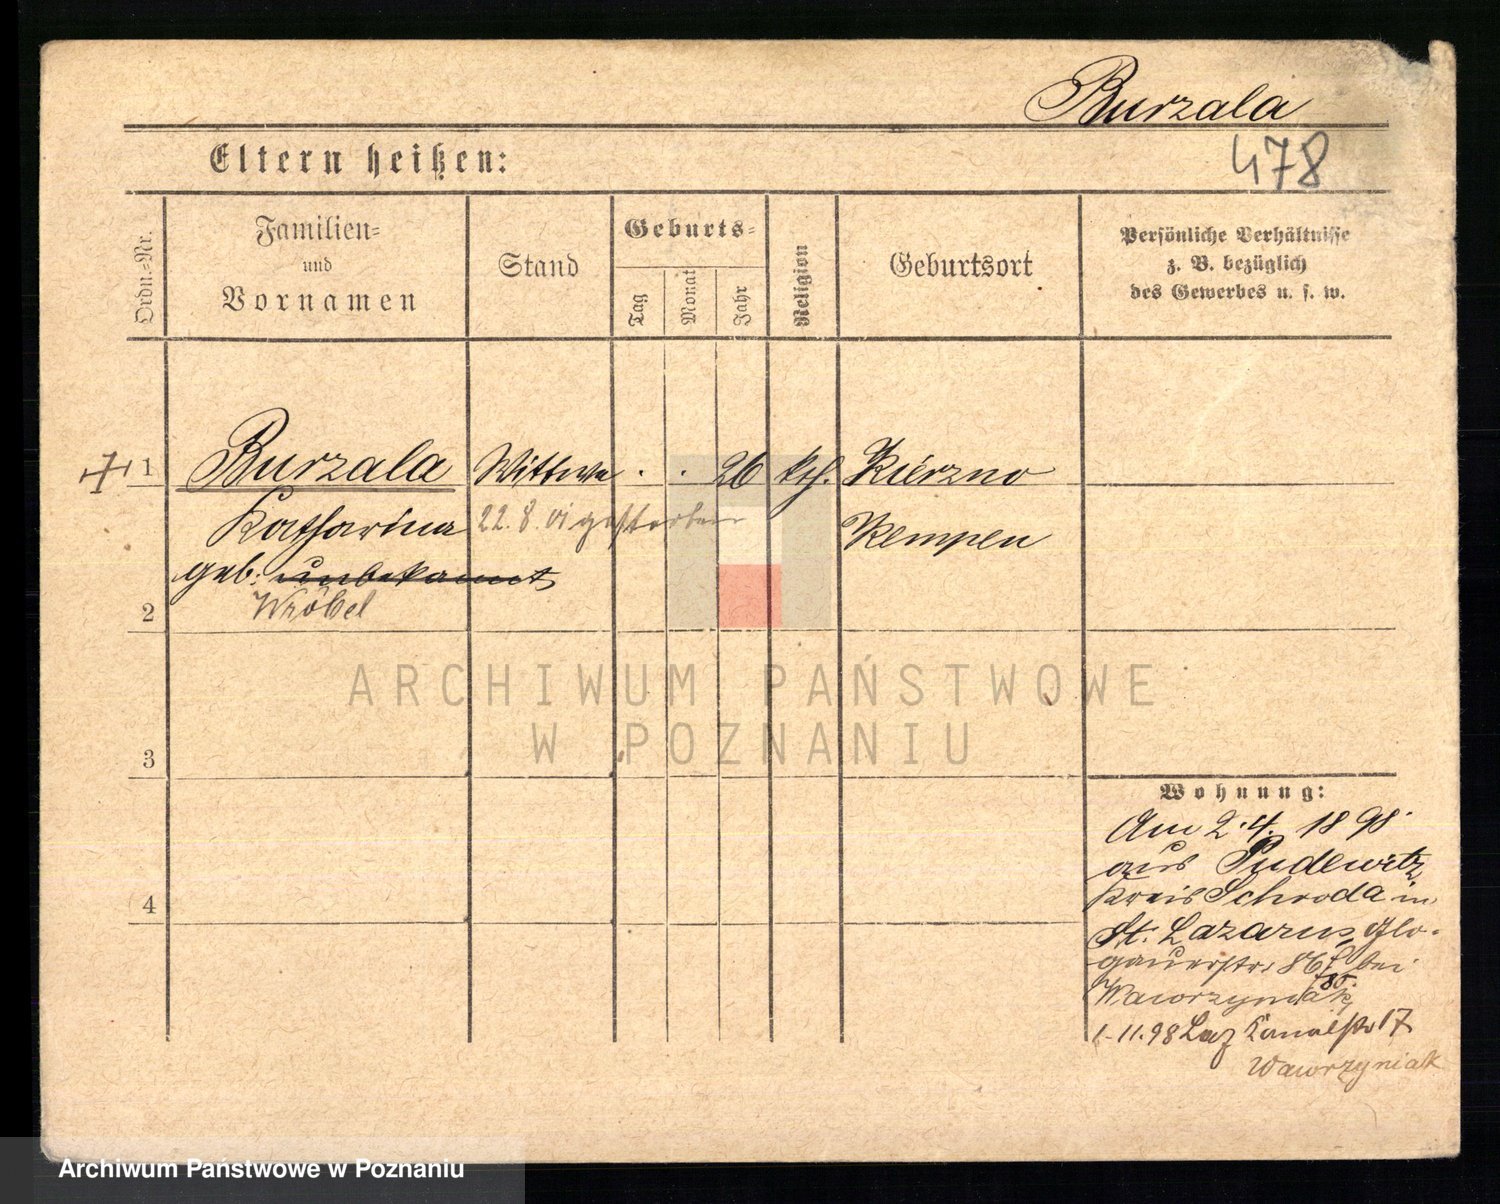 Burzala
478
Eltern heißen:
Ordn.-Nr.
Familien-
und
Vornamen
Stand
Geburts-
Tag
Monat
Jahr
Religion
Geburtsort
Persönliche Verhältnisse
z. B. bezüglich
des Gewerbes u. s. w.
1 Burzala Wittwe . . 26 kth. Kierzno
Katharina 22.8.01 gestorben Kempen
geb. unbekannt
Wróbel
2
3
4
Wohnung:
Am 2.4. 1898
aus Pudewitz
Kreis Schroda in
St. Lazarus, Glo-
gauerstr. bei
Wawrzyniak
1-11.98 Laz Kanalstr 17
Wawrzyniak
ARCHIWUM PAŃSTWOWE
W POZNANIU
Archiwum Państwowe w Poznaniu